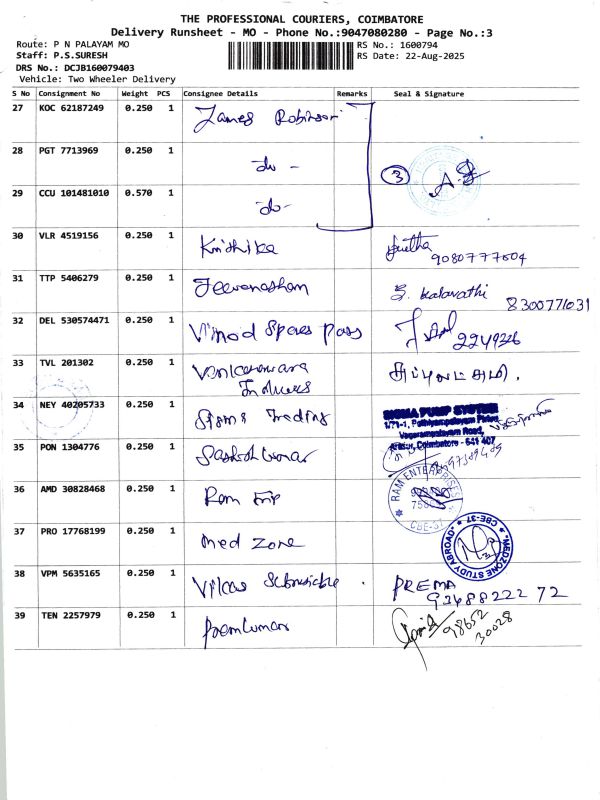 THE PROFESSIONAL COURIERS, COIMBATORE
Delivery Runsheet - MO - Phone No.:9047080280 - Page No.:3
Route: P N PALAYAM MO
RS No.: 1600794
Staff: P.S.SURESH
RS Date: 22-Aug-2025
DRS No.: DCJB160079403
Vehicle: Two Wheeler Delivery
S No Consignment No Weight PCS Consignee Details Remarks Seal & Signature
27 KOC 62187249 0.250 1 James Robinson
28 PGT 7713969 0.250 1 do - 3
29 CCU 101481010 0.570 1 do-
30 VLR 4519156 0.250 1 Krithika
9080777504
31 TTP 5406279 0.250 1 Jeevanandham S. Kalavathi
8300771031
32 DEL 530574471 0.250 1 Vimod Spares Pass 2249226
33 TVL 201302 0.250 1 Venkateswara
34 NEY 40205733 0.250 1 Sigma Trading
SIGMA PUMP SYSTEM
1/71-1, Pothiyampalayam Pirivu,
Vagarampalayam Road,
Arasur, Coimbatore - 641 407
35 PON 1304776 0.250 1 Sasikumar
36 AMD 30828468 0.250 1 Ram Enp
RAM ENTERPRISES
CBE-37
37 PRO 17768199 0.250 1 Med Zone
"MEDZONE STUDY ABROAD" CBE-37
38 VPM 5635165 0.250 1 Vikas Submersible PREMA
93688222 72
39 TEN 2257979 0.250 1 Premkumar
98652
30028